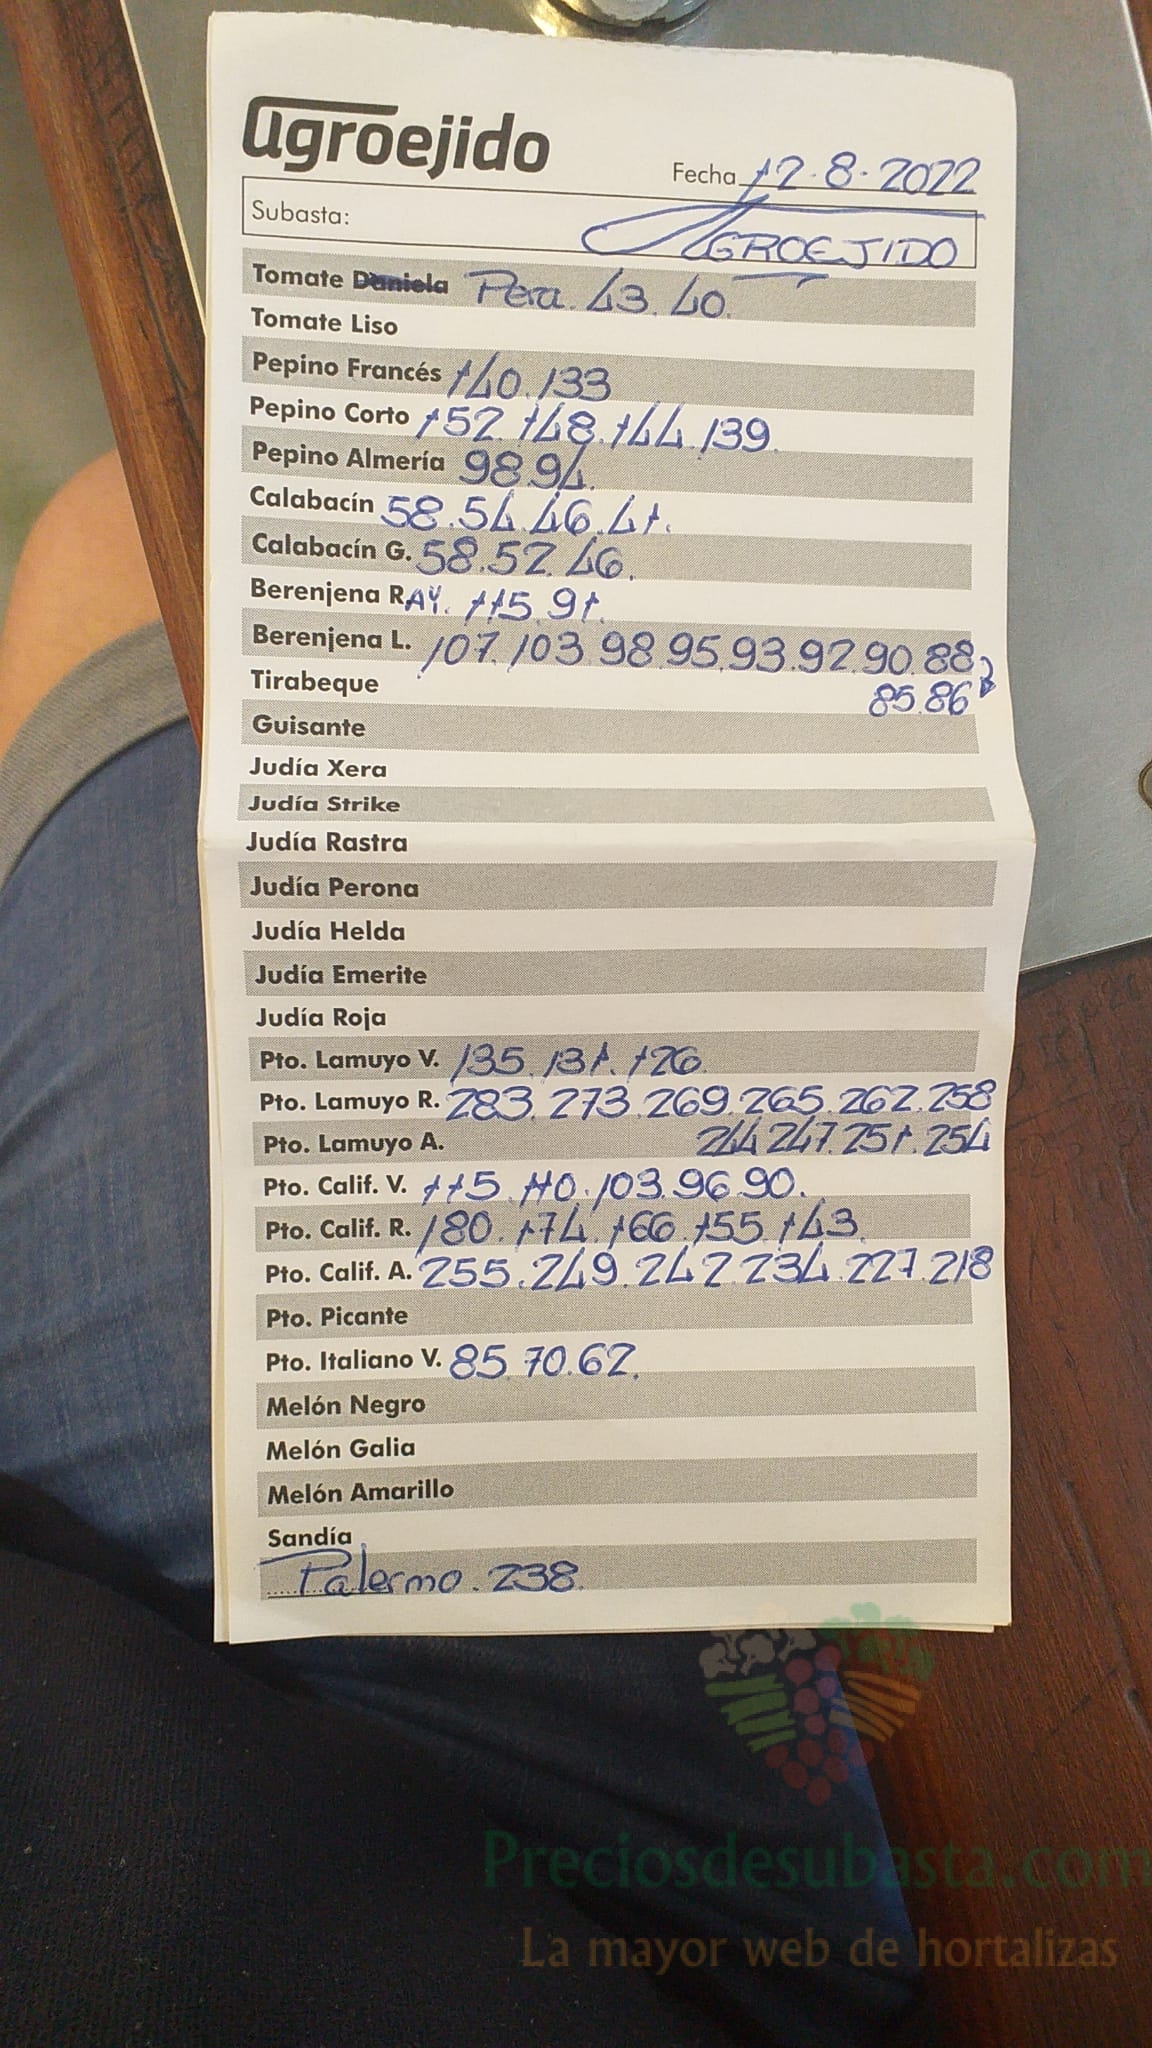 agroejido
Fecha 12-8-2022
Subasta: AGROEJIDO
Tomate Daniela Pera. 43. 40.
Tomate Liso
Pepino Francés 140. 133
Pepino Corto 152. 148. 144. 139.
Pepino Almería 98.94.
Calabacín 58.54.46.41.
Calabacín G. 58.52.46.
Berenjena RAY. 115.91.
Berenjena L. 107.103.98.95.93.92.90.88
Tirabeque 85.86
Guisante
Judía Xera
Judía Strike
Judía Rastra
Judía Perona
Judía Helda
Judía Emerite
Judía Roja
Pto. Lamuyo V. 135.131.126.
Pto. Lamuyo R. 283.273.269.265.262.258
Pto. Lamuyo A. 244.247.251.254
Pto. Calif. V. 115.110.103.96.90.
Pto. Calif. R. 180.174.166.155.143.
Pto. Calif. A. 255.249.242.234.227.218
Pto. Picante
Pto. Italiano V. 85.70.62.
Melón Negro
Melón Galia
Melón Amarillo
Sandía
Palermo. 238.
Preciosdesubasta.com
La mayor web de hortalizas